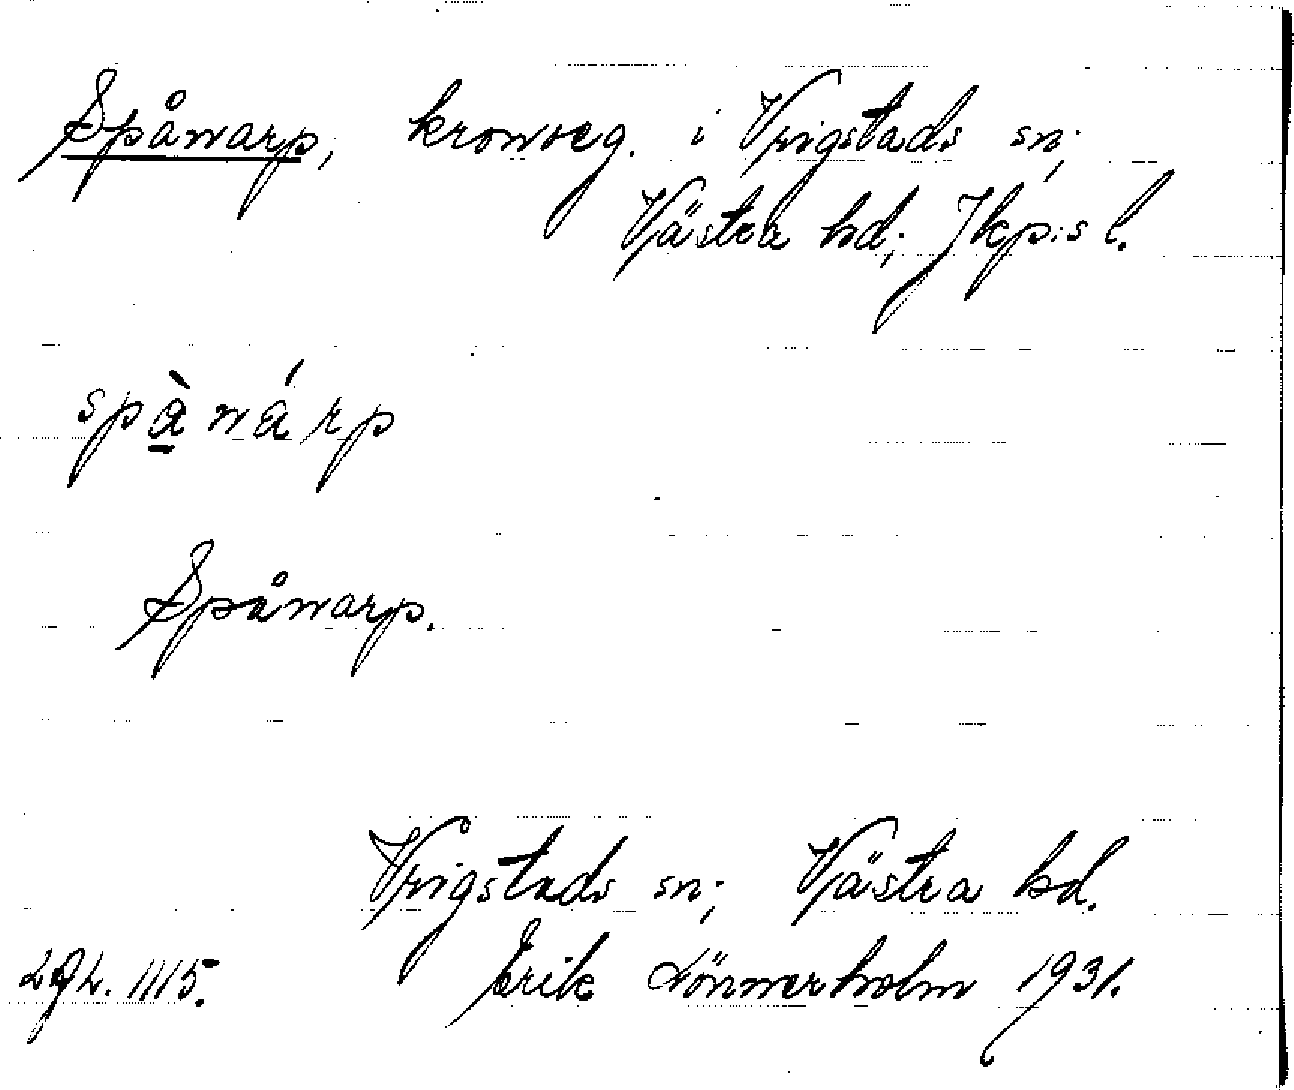 Spånarp, kronoeg. i Vrigstads sn;
Västra hd; Jkp:s l.
spànárp
Spånarp.
Vrigstads sn; Västra hd.
Lgh. 1115. Erik Lönnerholm 1931.